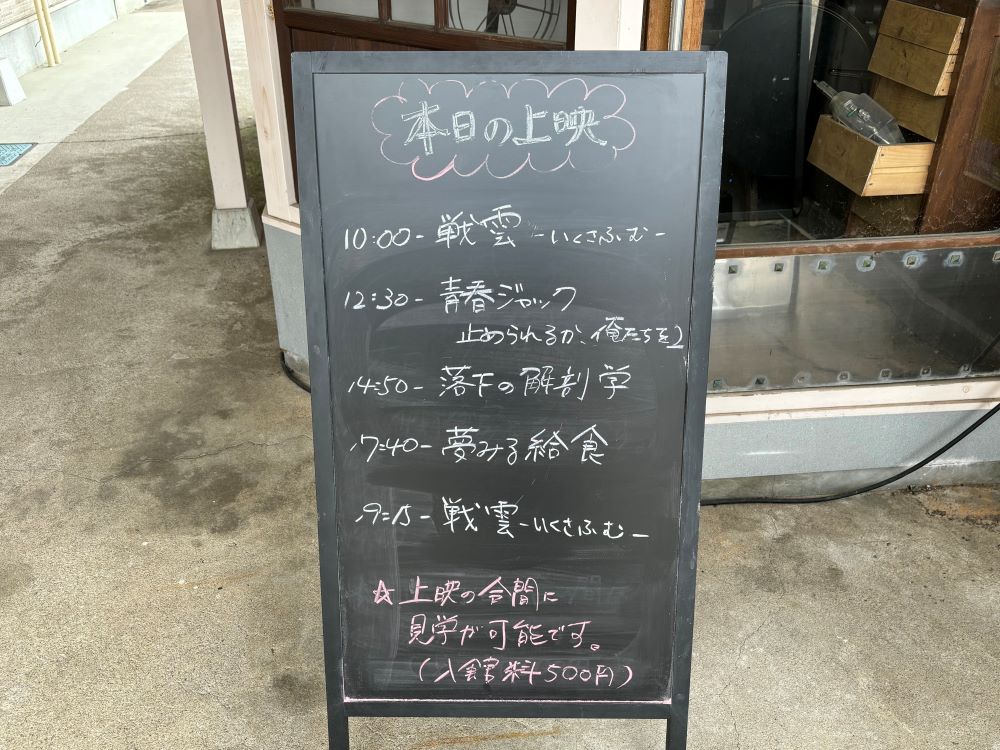 本日の上映
10:00- 戦雲 -いくさふむ-
12:30- 青春ジャック
止められるか、俺たちを2
14:50- 落下の解剖学
17:40- 夢みる給食
19:15- 戦雲 -いくさふむ-
☆上映の合間に
見学が可能です。
(入館料500円)